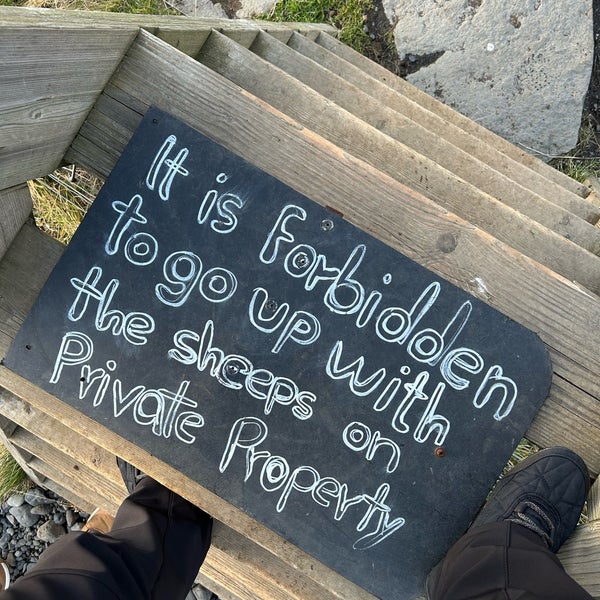 It is forbidden
to go up with
the sheeps on
Private Property